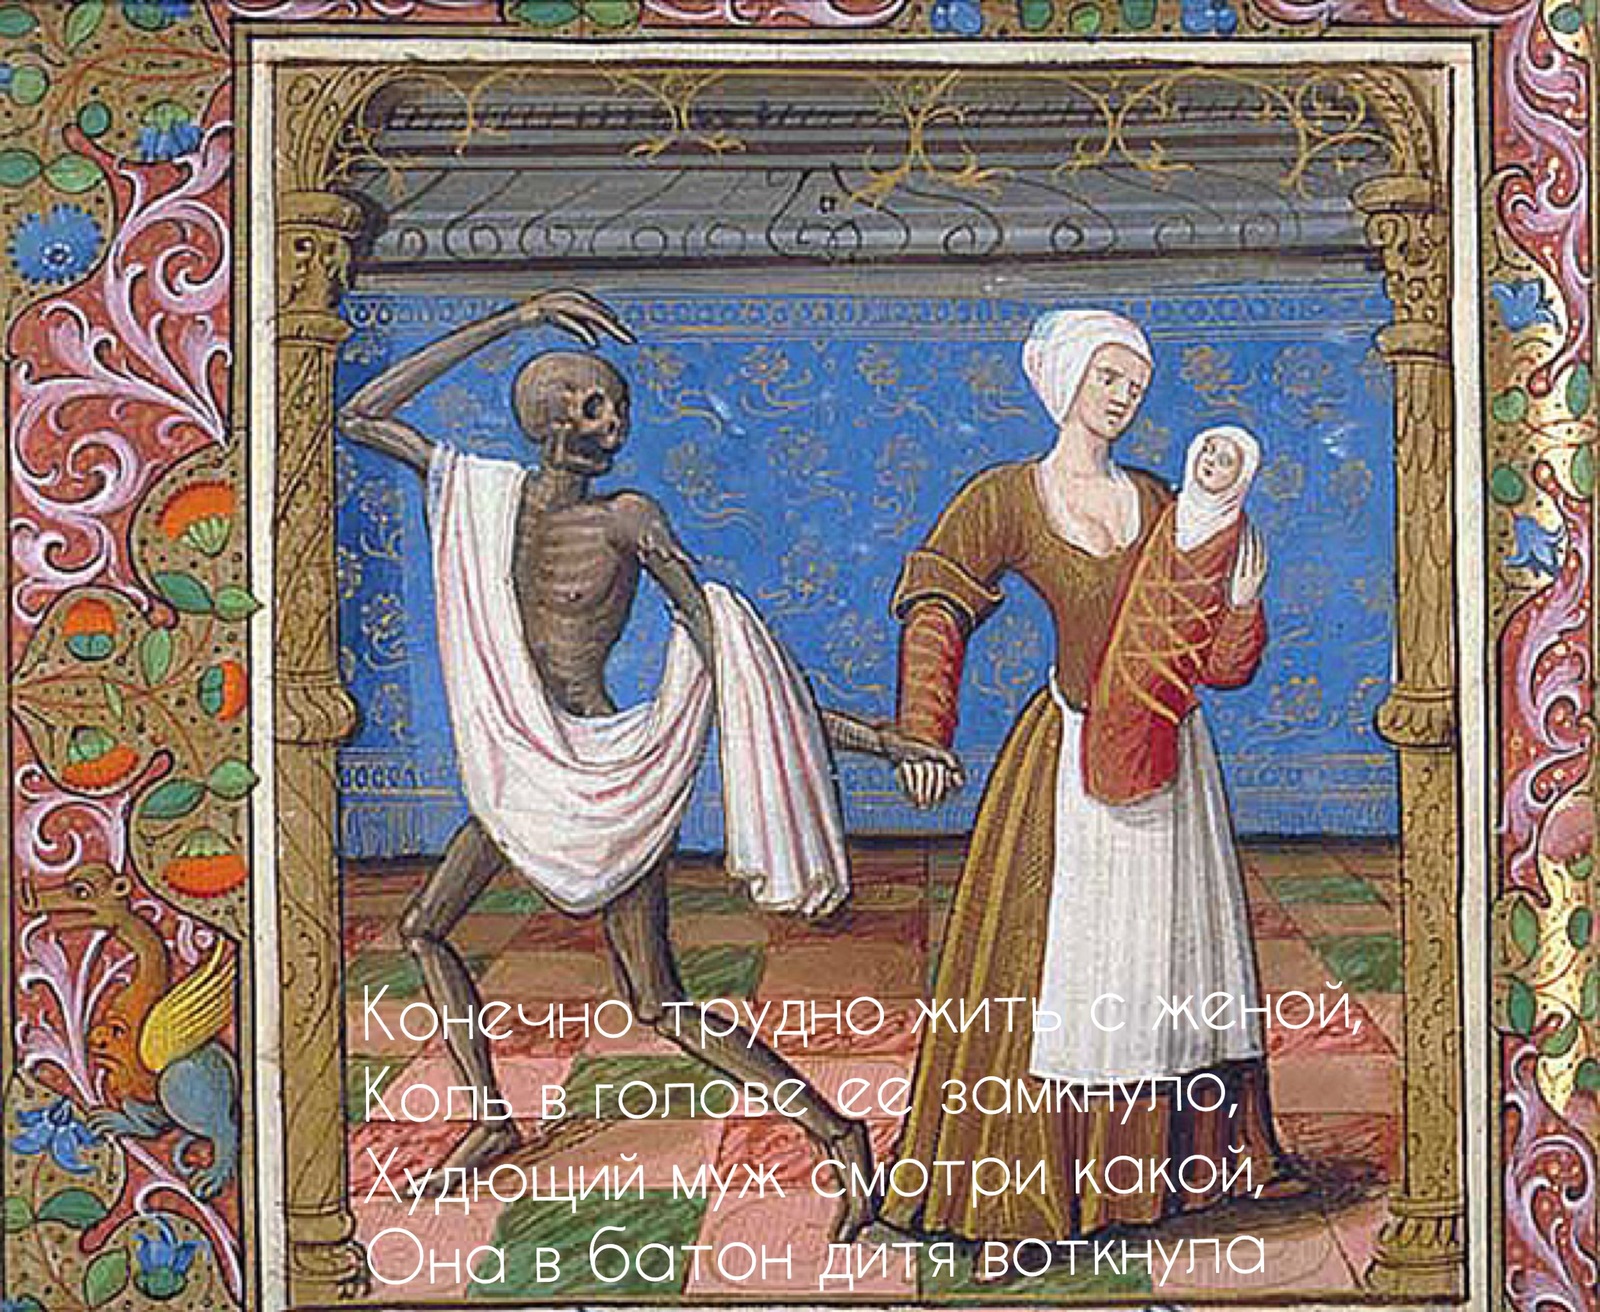 Конечно трудно жить с женой,
Коль в голове ее замкнуло,
Худющий муж смотри какой,
Она в батон дитя воткнула